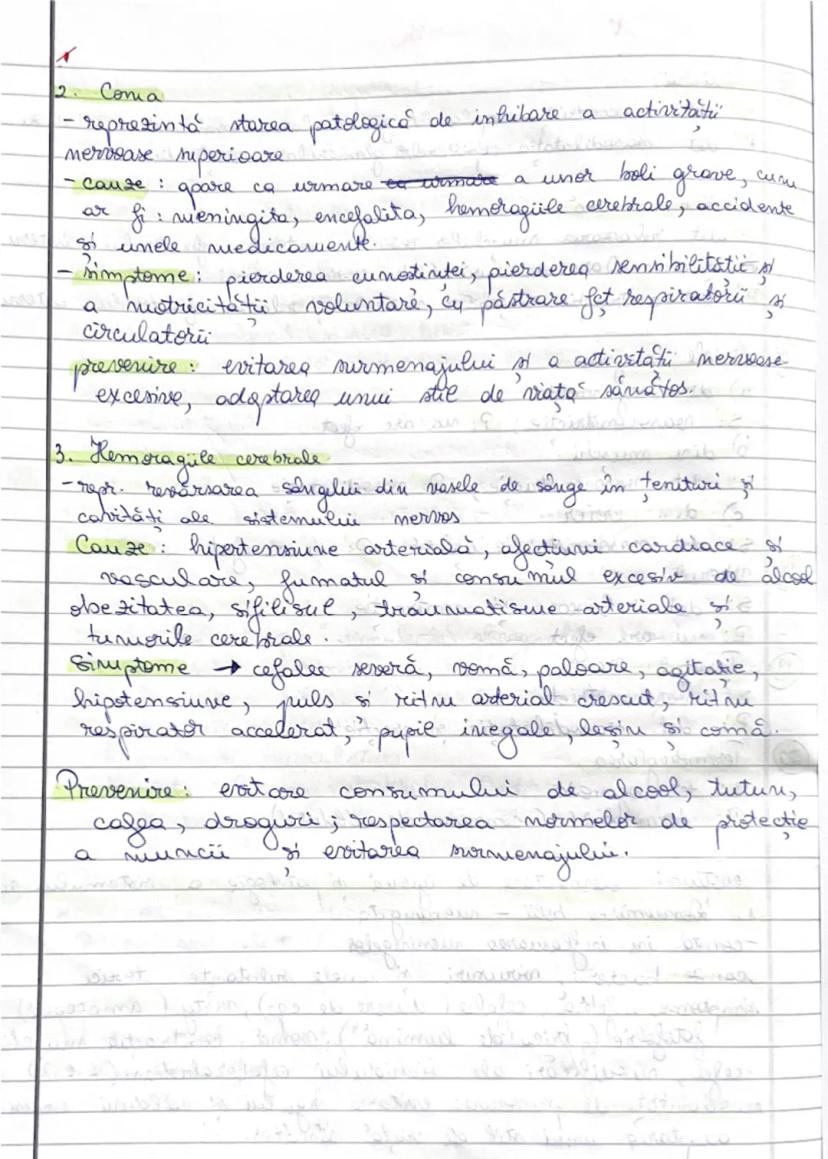 2. Coma
- reprezintă starea patologică de inhibare a activității
nervoase superioare
- cauze : apare ca urmare ca urmare a unor boli grave, cum
ar fi : meningita, encefalita, hemoragiile cerebrale, accidente
și unele medicamente.
- simptome : pierderea cunoștinței, pierderea sensibilității și
a motricității voluntare, cu păstrare fct respiratorii și
circulatorii
prevenire : evitarea surmenajului și a activității nervoase
excesive, adoptarea unui stil de viață sănătos.
3. Hemoragiile cerebrale
- repr. revărsarea sângelui din vasele de sânge în țenituri și
cavități ale sistemului nervos
Cauze : hipertensiune arterială, afecțiuni cardiace și
vasculare, fumatul și consumul excesiv de alcool
obezitatea, sifilisul, traumatisme arteriale și
tumorile cerebrale.
Simptome → cefalee severă, vomă, paloare, agitație,
hipotensiune, puls și ritm arterial crescut, ritm
respirator accelerat, pupile inegale, leșin și comă.
Prevenire : evitare consumului de alcool, tutun,
cafea, droguri ; respectarea normelor de protecție
a muncii și evitarea surmenajului.